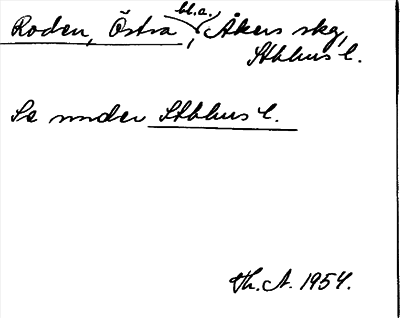 Roden, Östra, bl.a. Åkers skg,
Stbhus l.
Se under Stbhus l.
Th. A. 1954.